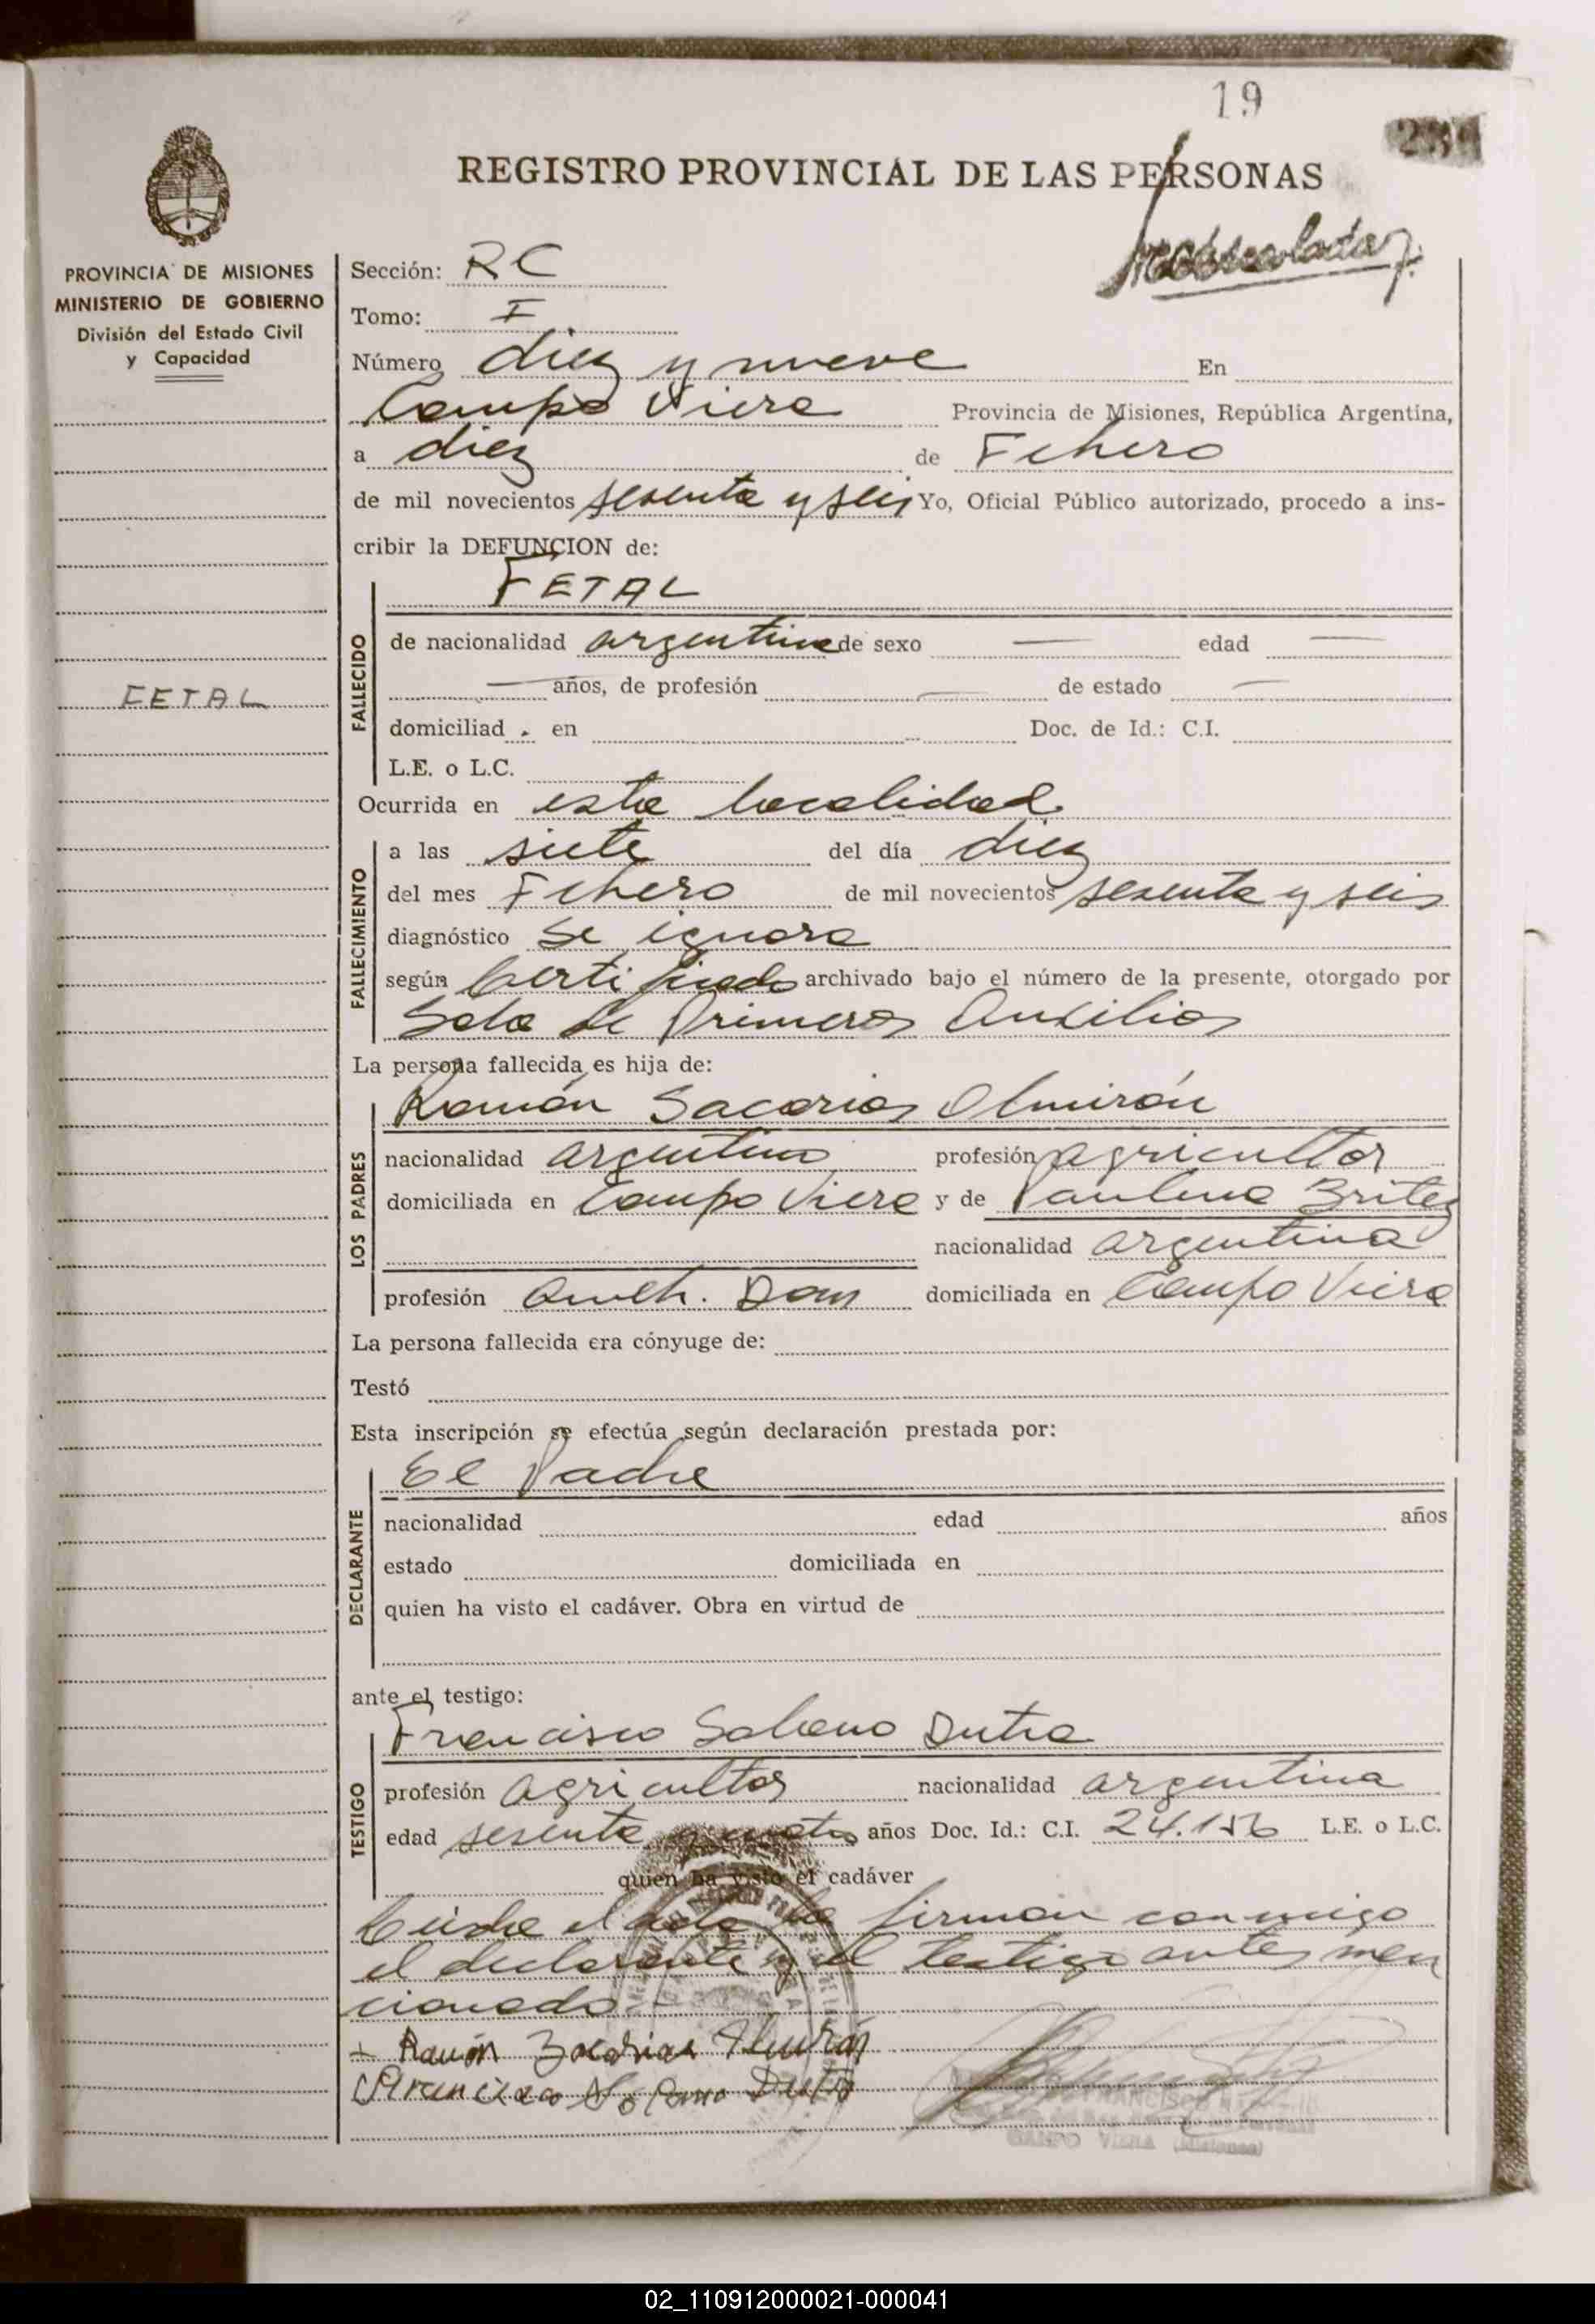 19
REGISTRO PROVINCIAL DE LAS PERSONAS
PROVINCIA DE MISIONES
MINISTERIO DE GOBIERNO
División del Estado Civil
y Capacidad
FETAL
Sección: RC
Tomo: I
Número diez y nueve En
Campo Viera Provincia de Misiones, República Argentina,
a diez de Febrero
de mil novecientos sesenta y seis Yo, Oficial Público autorizado, procedo a ins-
cribir la DEFUNCION de:
FETAL
FALLECIDO
de nacionalidad argentina de sexo — edad —
— años, de profesión — de estado —
domiciliad . en Doc. de Id.: C.I.
L.E. o L.C.
Ocurrida en esta localidad
FALLECIMIENTO
a las siete del día diez
del mes Febrero de mil novecientos sesenta y seis
diagnóstico Se ignora
según Certificado archivado bajo el número de la presente, otorgado por
Sala de Primeros Auxilios
La persona fallecida es hija de:
LOS PADRES
Ramón Sacarias Almirón
nacionalidad argentino profesión agricultor
domiciliada en Campo Viera y de Paulina Britez
nacionalidad argentina
profesión Queh. Dom domiciliada en Campo Viera
La persona fallecida era cónyuge de:
Testó
Esta inscripción se efectúa según declaración prestada por:
DECLARANTE
El Padre
nacionalidad edad años
estado domiciliada en
quien ha visto el cadáver. Obra en virtud de
ante el testigo:
TESTIGO
Francisco Solano Dutra
profesión agricultor nacionalidad argentina
edad sesenta y cuatro años Doc. Id.: C.I. 24.156 L.E. o L.C.
quien ha visto el cadáver
el acta la firman conmigo
el declarante y el testigo antes men
cionado.-
+ Ramón Zacarias Almirón
Francisco Solano Dutra
FRANCISCO
CAMPO VIERA (Misiones)
02_110912000021-000041